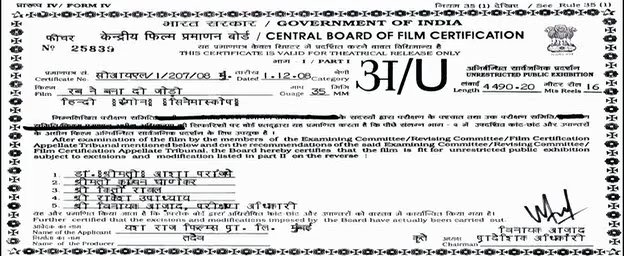 प्ररूप IV/ FORM IV नियम 35 (1) देखिए / See Rule 35 (1)
भारत सरकार / GOVERNMENT OF INDIA
फीचर केन्द्रीय फिल्म प्रमाणन बोर्ड / CENTRAL BOARD OF FILM CERTIFICATION
№ 25839 यह प्रमाणपत्र केवल थियेटर में प्रदर्शित करने वास्ते विधिमान्य है
THIS CERTIFICATE IS VALID FOR THEATRICAL RELEASE ONLY
भाग I / PART I
प्रमाणपत्र सं. सीआयएल/1/207/08 मुं. तारीख 1.12.08 श्रेणी अ/U अनिर्बन्धित सार्वजनिक प्रदर्शन
Certificate No. Dated Class UNRESTRICTED PUBLIC EXHIBITION
फिल्म रब ने बना दी जोड़ी गेज मिमि लम्बाई मीटर रील
Film Guage 35 MM Length 4490.20 Mts Reels 16
हिन्दी रंगीन सिनेमास्कोप
After examination of the film by the members of the Examining Committee/Revising Committee/Film Certification
Appellate Tribunal mentioned below and on the recommendations of the said Examining Committee/Revising Committee/
Film Certification Appellate Tribunal, the Board hereby certifies that the film is fit for unrestricted public exhibition
subject to excisions and modification listed in part II on the reverse :
1. डा. श्रीमती आशा परांजपे
2. श्रीमती कांचन घाणेकर
3. श्री किर्ती रावल
4. श्री राकेश उपाध्याय
5. श्री विनायक आजाद, परीक्षण अधिकारी
Further certified that the excisions and modifications imposed by the Board have actually been carried out.
आवेदक का नाम यश राज फिल्म्स प्रा. लि. मुंबई विनायक आजाद
Name of the Applicant
निर्माता का नाम तदैव कृते प्रादेशिक अधिकारी
Name of the Producer Chairman